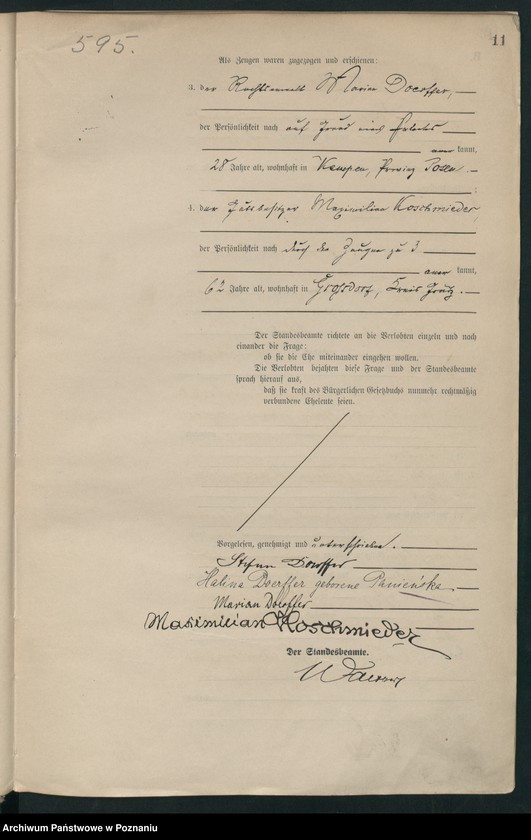 595.
11
Als Zeugen waren zugezogen und erschienen:
3. der Rechtsanwalt Marian Doerffer,
der Persönlichkeit nach auf Grund eines
aner kannt,
28 Jahre alt, wohnhaft in Kempen, Provinz Posen.
;
4. der Gutsbesitzer Maximilian Koschmieder,
der Persönlichkeit nach durch den Zeugen zu 3
aner kannt,
62 Jahre alt, wohnhaft in Grossdorf, Kreis Grätz.
Der Standesbeamte richtete an die Verlobten einzeln und nach
einander die Frage:
ob sie die Ehe miteinander eingehen wollen.
Die Verlobten bejahten diese Frage und der Standesbeamte
sprach hierauf aus,
daß sie kraft des Bürgerlichen Gesetzbuchs nunmehr rechtmäßig
verbundene Eheleute seien.
Vorgelesen, genehmigt und unterschrieben.
Stefan Doerffer
Halina Doerffer geborene Panieńska.
Marian Doerffer
Maximilian Koschmieder
Der Standesbeamte.
Archiwum Państwowe w Poznaniu